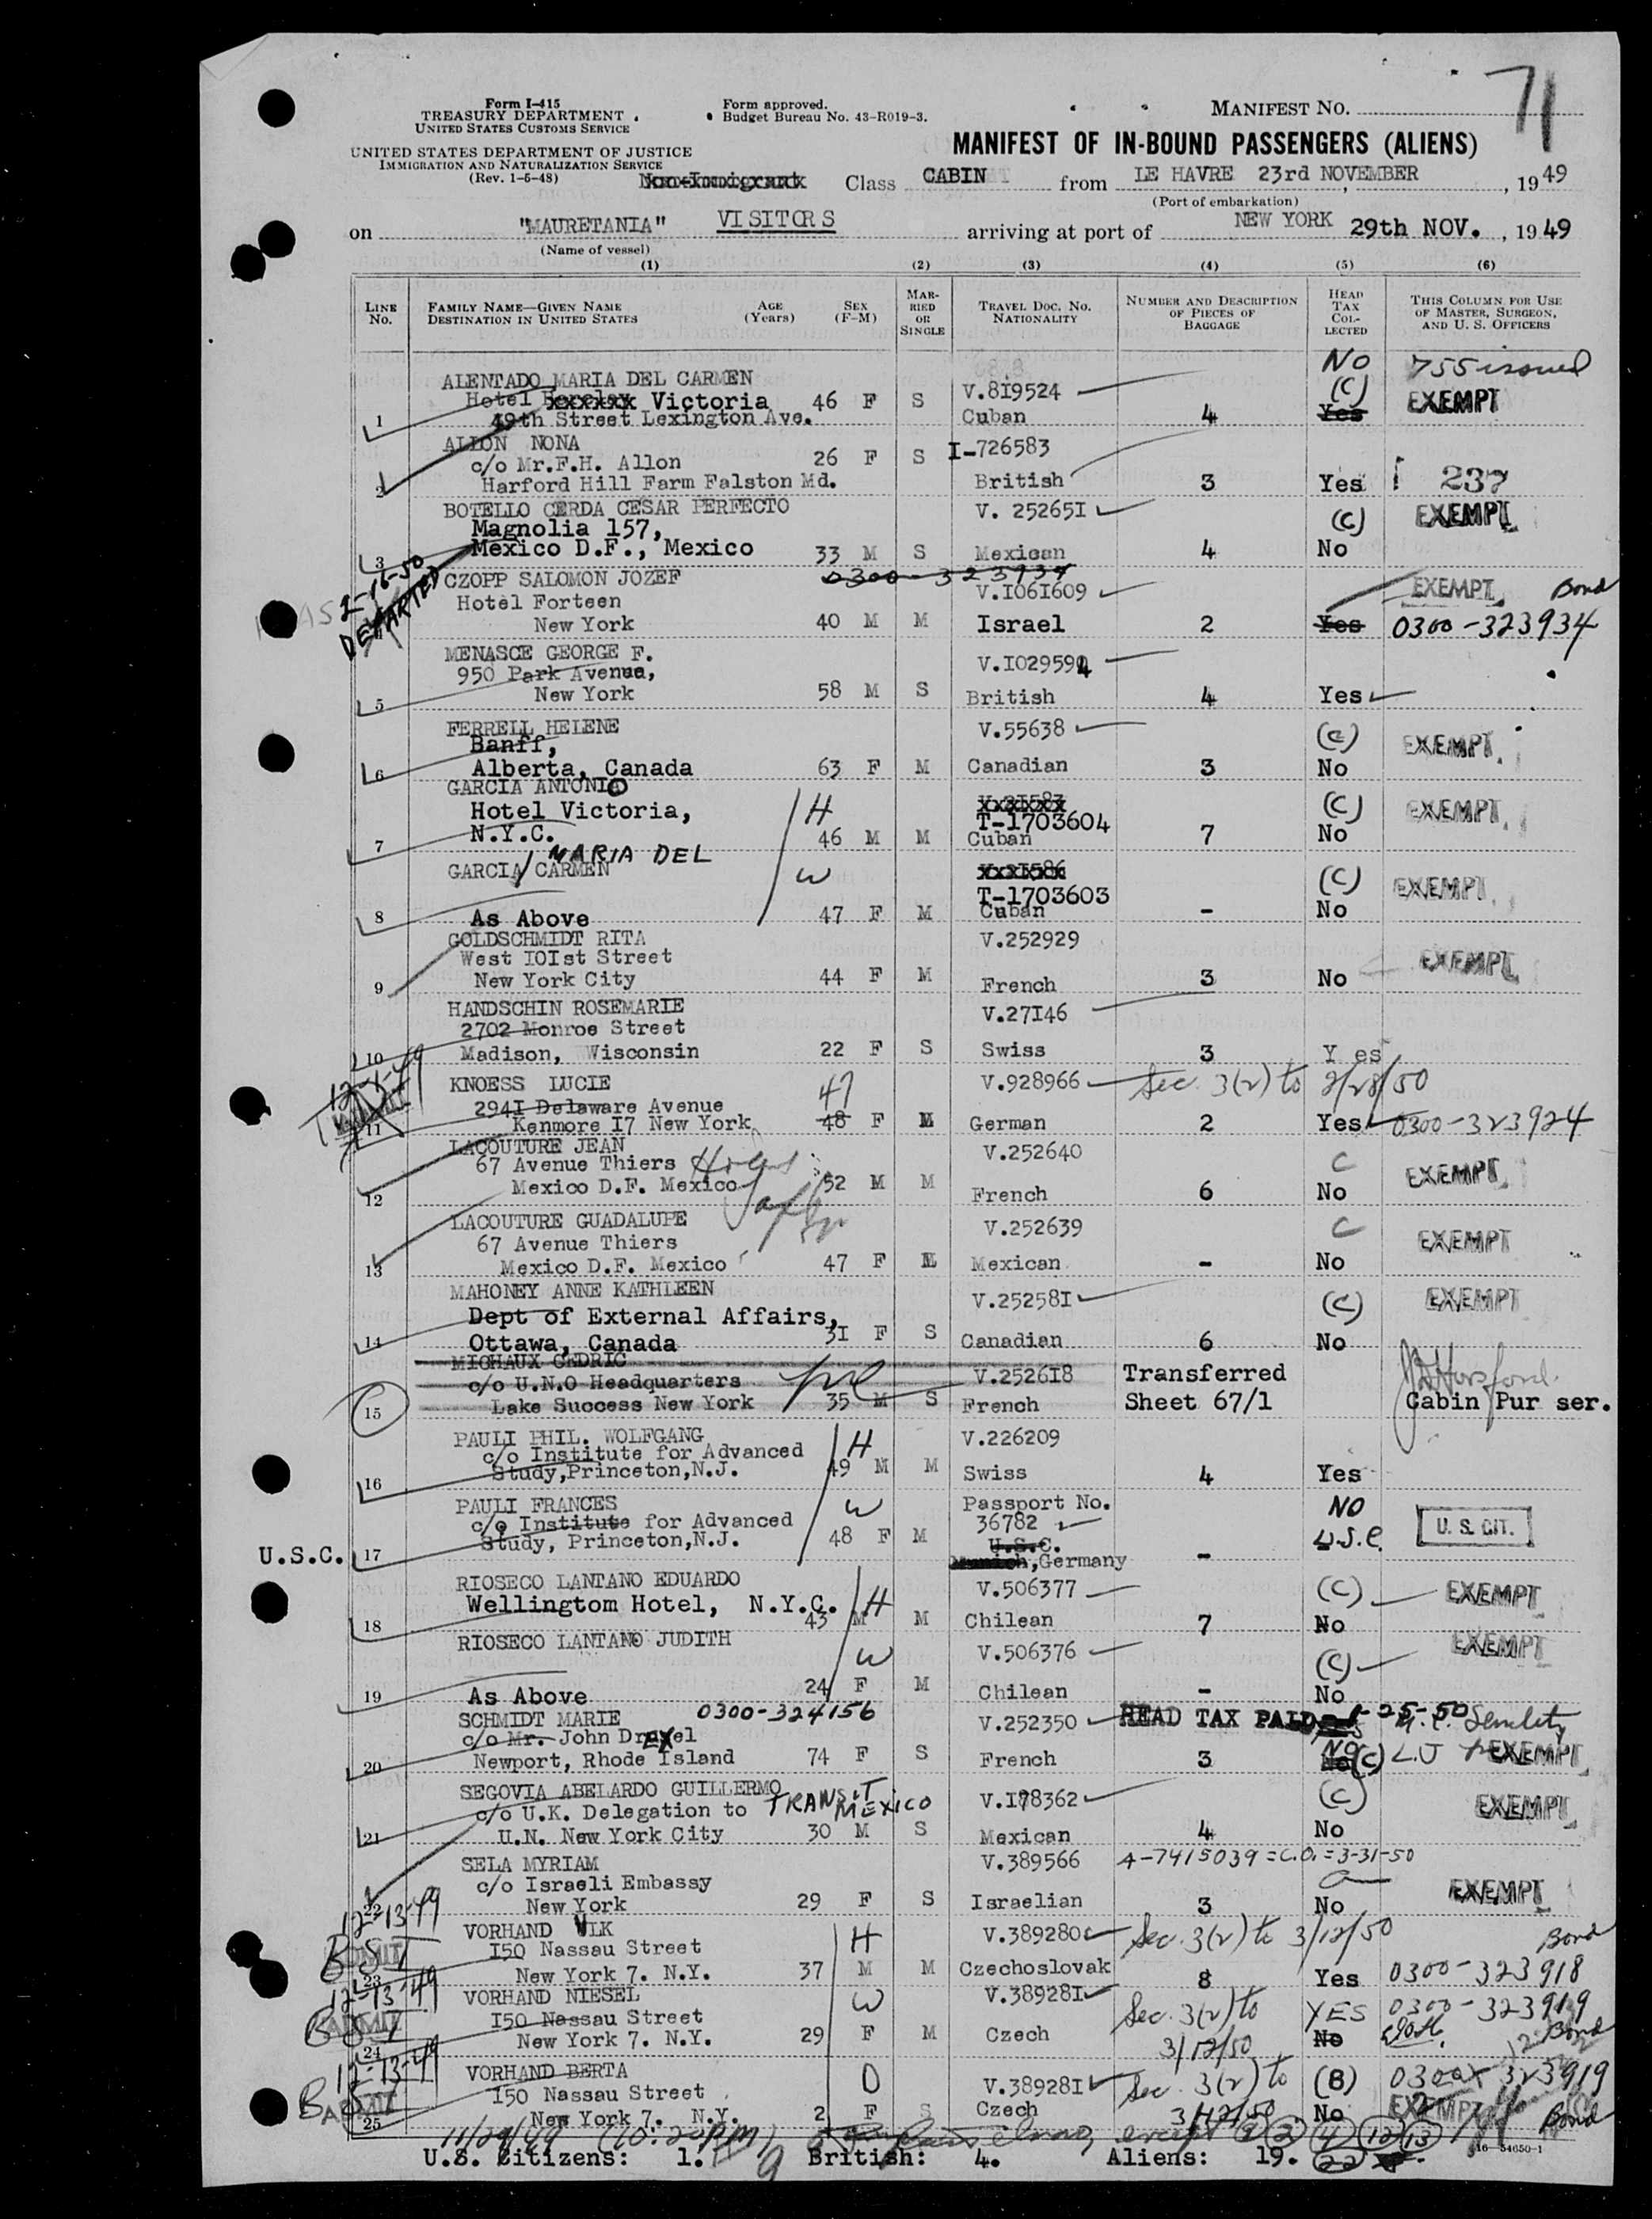 71
Form I-415
TREASURY DEPARTMENT
UNITED STATES CUSTOMS SERVICE
Form approved.
Budget Bureau No. 43-R019-3.
MANIFEST NO.
UNITED STATES DEPARTMENT OF JUSTICE
IMMIGRATION AND NATURALIZATION SERVICE
(Rev. 1-6-48)
MANIFEST OF IN-BOUND PASSENGERS (ALIENS)
Non-Immigrant Class CABIN from LE HAVRE 23rd NOVEMBER, 1949
(Port of embarkation)
on "MAURETANIA" VISITORS arriving at port of NEW YORK 29th NOV., 1949
(Name of vessel)
(1) (2) (3) (4) (5) (6)
LINE No. FAMILY NAME—GIVEN NAME DESTINATION IN UNITED STATES AGE (Years) SEX (F-M) MARRIED OR SINGLE TRAVEL DOC. NO. NATIONALITY NUMBER AND DESCRIPTION OF PIECES OF BAGGAGE HEAD TAX COLLECTED THIS COLUMN FOR USE OF MASTER, SURGEON, AND U. S. OFFICERS
NO 755 issued
ALENTADO MARIA DEL CARMEN V.819524 (C) EXEMPT
Hotel xxxxxx Victoria 46 F S
1 49th Street Lexington Ave. Cuban 4 Yes
ALLON NONA I-726583
c/o Mr.F.H. Allon 26 F S
2 Harford Hill Farm Falston Md. British 3 Yes 237
BOTELLO CERDA CESAR PERFECTO V. 252651 (C) EXEMPT
Magnolia 157,
3 Mexico D.F., Mexico 33 M S Mexican 4 No
2-16-50 DEPARTED
CZOPP SALOMON JOZEF 0300-323934 V.1061609 EXEMPT Bond
Hotel Forteen
New York 40 M M Israel 2 Yes 0300-323934
MENASCE GEORGE F. V.1029594
950 Park Avenue,
5 New York 58 M S British 4 Yes
FERRELL HELENE V.55638 (C) EXEMPT
Banff,
6 Alberta, Canada 63 F M Canadian 3 No
GARCIA ANTONIO (C) EXEMPT
Hotel Victoria, H T-1703604
7 N.Y.C. 46 M M Cuban 7 No
MARIA DEL
GARCIA / CARMEN W (C) EXEMPT
T-1703603
8 As Above 47 F M Cuban - No
GOLDSCHMIDT RITA V.252929 EXEMPT
West 101st Street
9 New York City 44 F M French 3 No
HANDSCHIN ROSEMARIE V.27146
2702 Monroe Street
10 Madison, Wisconsin 22 F S Swiss 3 Y es
12-1-49
KNOESS LUCIE 47 V.928966 Sec. 3(2) to 2/28/50
2941 Delaware Avenue
11 Kenmore 17 New York 48 F M German 2 Yes 0300-323924
LACOUTURE JEAN V.252640 C EXEMPT
67 Avenue Thiers
12 Mexico D.F. Mexico 52 M M French 6 No
LACOUTURE GUADALUPE V.252639 C EXEMPT
67 Avenue Thiers
13 Mexico D.F. Mexico 47 F M Mexican - No
MAHONEY ANNE KATHLEEN V.252581 (C) EXEMPT
Dept of External Affairs,
14 Ottawa, Canada 31 F S Canadian 6 No
MICHAUX CEDRIC V.252618 Transferred
c/o U.N.O Headquarters
15 Lake Success New York 35 M S French Sheet 67/1 Cabin Pur ser.
PAULI PHIL. WOLFGANG H V.226209
c/o Institute for Advanced
16 Study,Princeton,N.J. 49 M M Swiss 4 Yes
PAULI FRANCES W Passport No. NO
c/o Institute for Advanced 36782 U.S.C. U. S. CIT.
U.S.C. 17 Study, Princeton,N.J. 48 F M U.S.C. -
Munich,Germany
RIOSECO LANTANO EDUARDO V.506377 (C) EXEMPT
Wellingtom Hotel, N.Y.C. H
18 43 M M Chilean 7 No
RIOSECO LANTANO JUDITH W V.506376 (C) EXEMPT
19 As Above 24 F M Chilean - No
SCHMIDT MARIE 0300-324156 V.252350 HEAD TAX PAID 1-25-50
c/o Mr. John Drexel NO
20 Newport, Rhode Island 74 F S French 3 (C) EXEMPT
SEGOVIA ABELARDO GUILLERMO V.178362 (C) EXEMPT
c/o U.K. Delegation to TRANSIT MEXICO
21 U.N. New York City 30 M S Mexican 4 No
SELA MYRIAM V.389566 A-7415039=C.O.=3-31-50
c/o Israeli Embassy
22 New York 29 F S Israelian 3 No EXEMPT
12-13-49
VORHAND ULK H V.389280 Sec. 3(2) to 3/12/50 Bond
150 Nassau Street
23 New York 7. N.Y. 37 M M Czechoslovak 8 Yes 0300-323918
12-13-49 ADMIT
VORHAND NIESEL W V.389281 Sec. 3(2) to YES 0300-323919
150 Nassau Street
24 New York 7. N.Y. 29 F M Czech 3/12/50 No Bond
12-13-49 ADMIT
VORHAND BERTA D V.389281 Sec. 3(2) to (B) 323919
150 Nassau Street
25 New York 7. N.Y. 2 F S Czech 3/12/50 No EXEMPT Bond
11/29/49 except 2 4 12 13
16—54650-1
U.S. Citizens: 1. 9 British: 4. Aliens: 19. 22